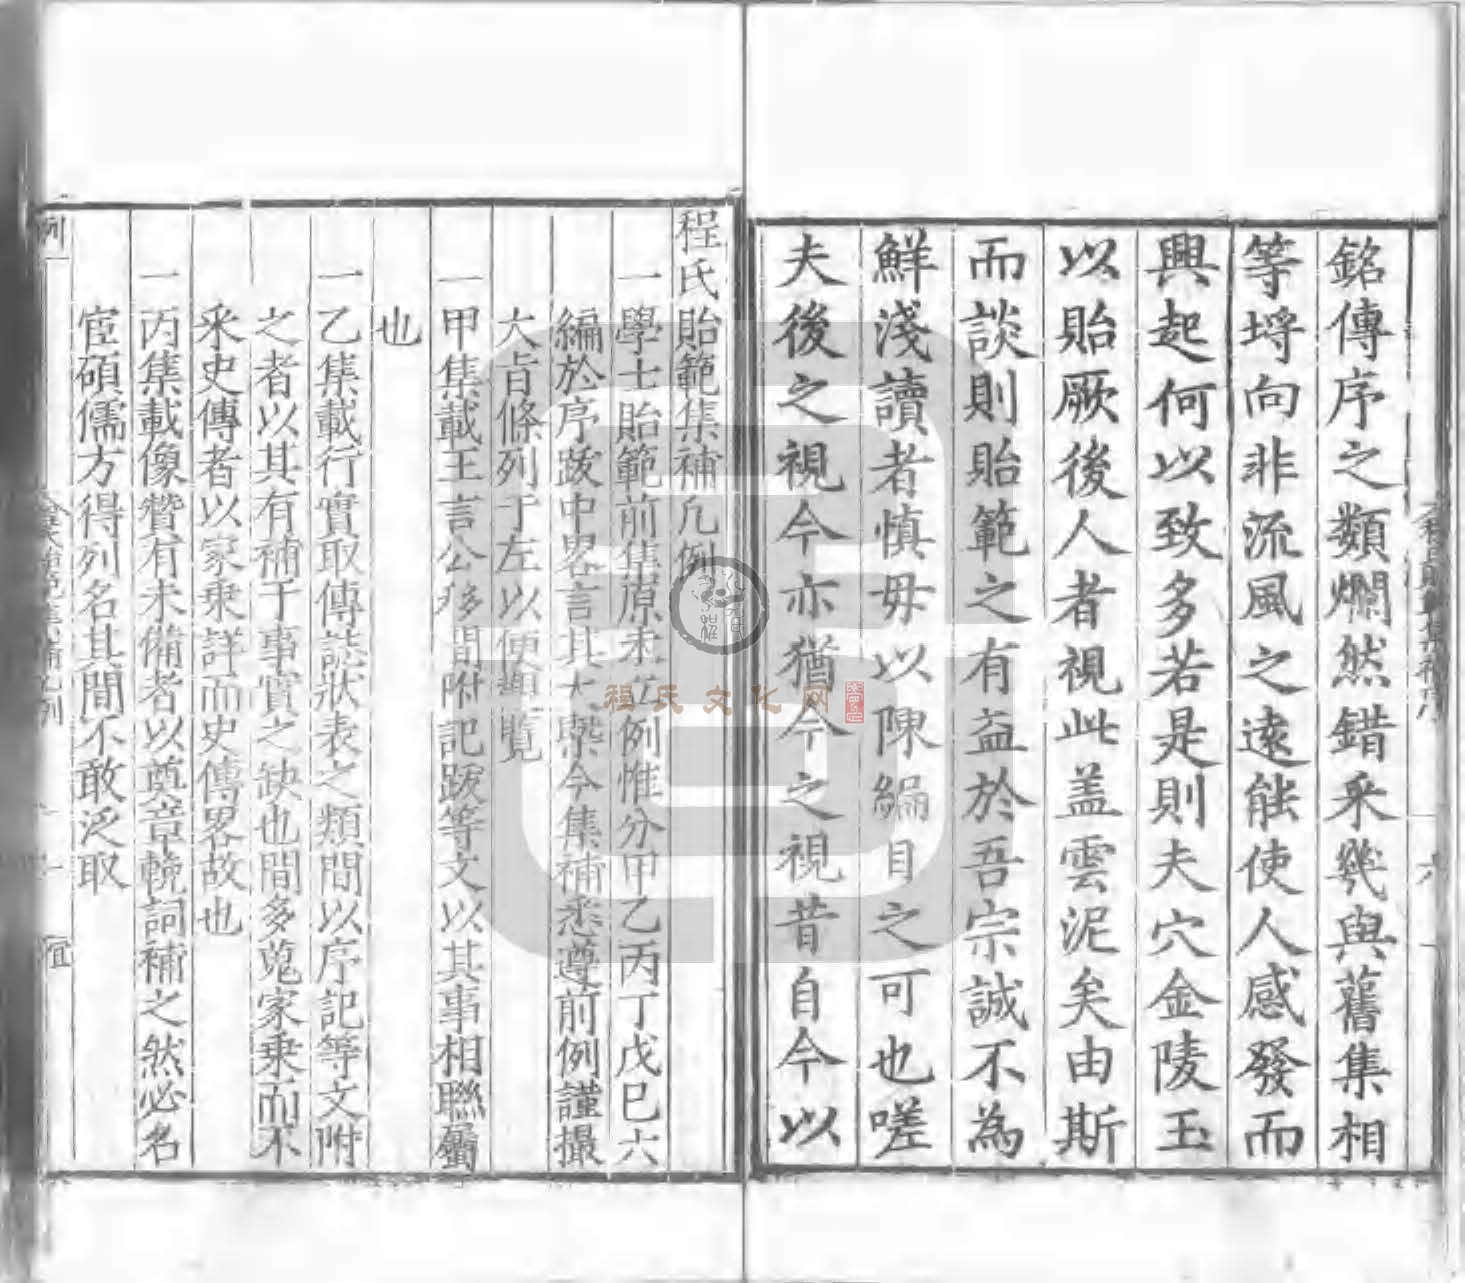 銘傳序之類爛然錯采幾與舊集相
等埒向非流風之遠能使人感發而
興起何以致多若是則夫穴金陵玉
以貽厥後人者視此盖雲泥矣由斯
而談則貽範之有益於吾宗誠不為
鮮淺讀者慎毋以陳編目之可也嗟
夫後之視今亦猶今之視昔自今以
程氏貽範集補凡例
一學士貽範前集原未立例惟分甲乙丙丁戊巳六
編於序跋中畧言其大槩今集補悉遵前例謹撮
大㫖條列于左以便觀覽
一甲集載王言公移間附記跋等文以其事相聯屬
也
一乙集載行實取傳誌狀表之類間以序記等文附
之者以其有補于事實之缺也間多蒐家乗而不
采史傳者以家乗詳而史傳畧故也
一丙集載像贊有未備者以奠章輓詞補之然必名
宦碩儒方得列名其間不敢泛取
程氏文化网